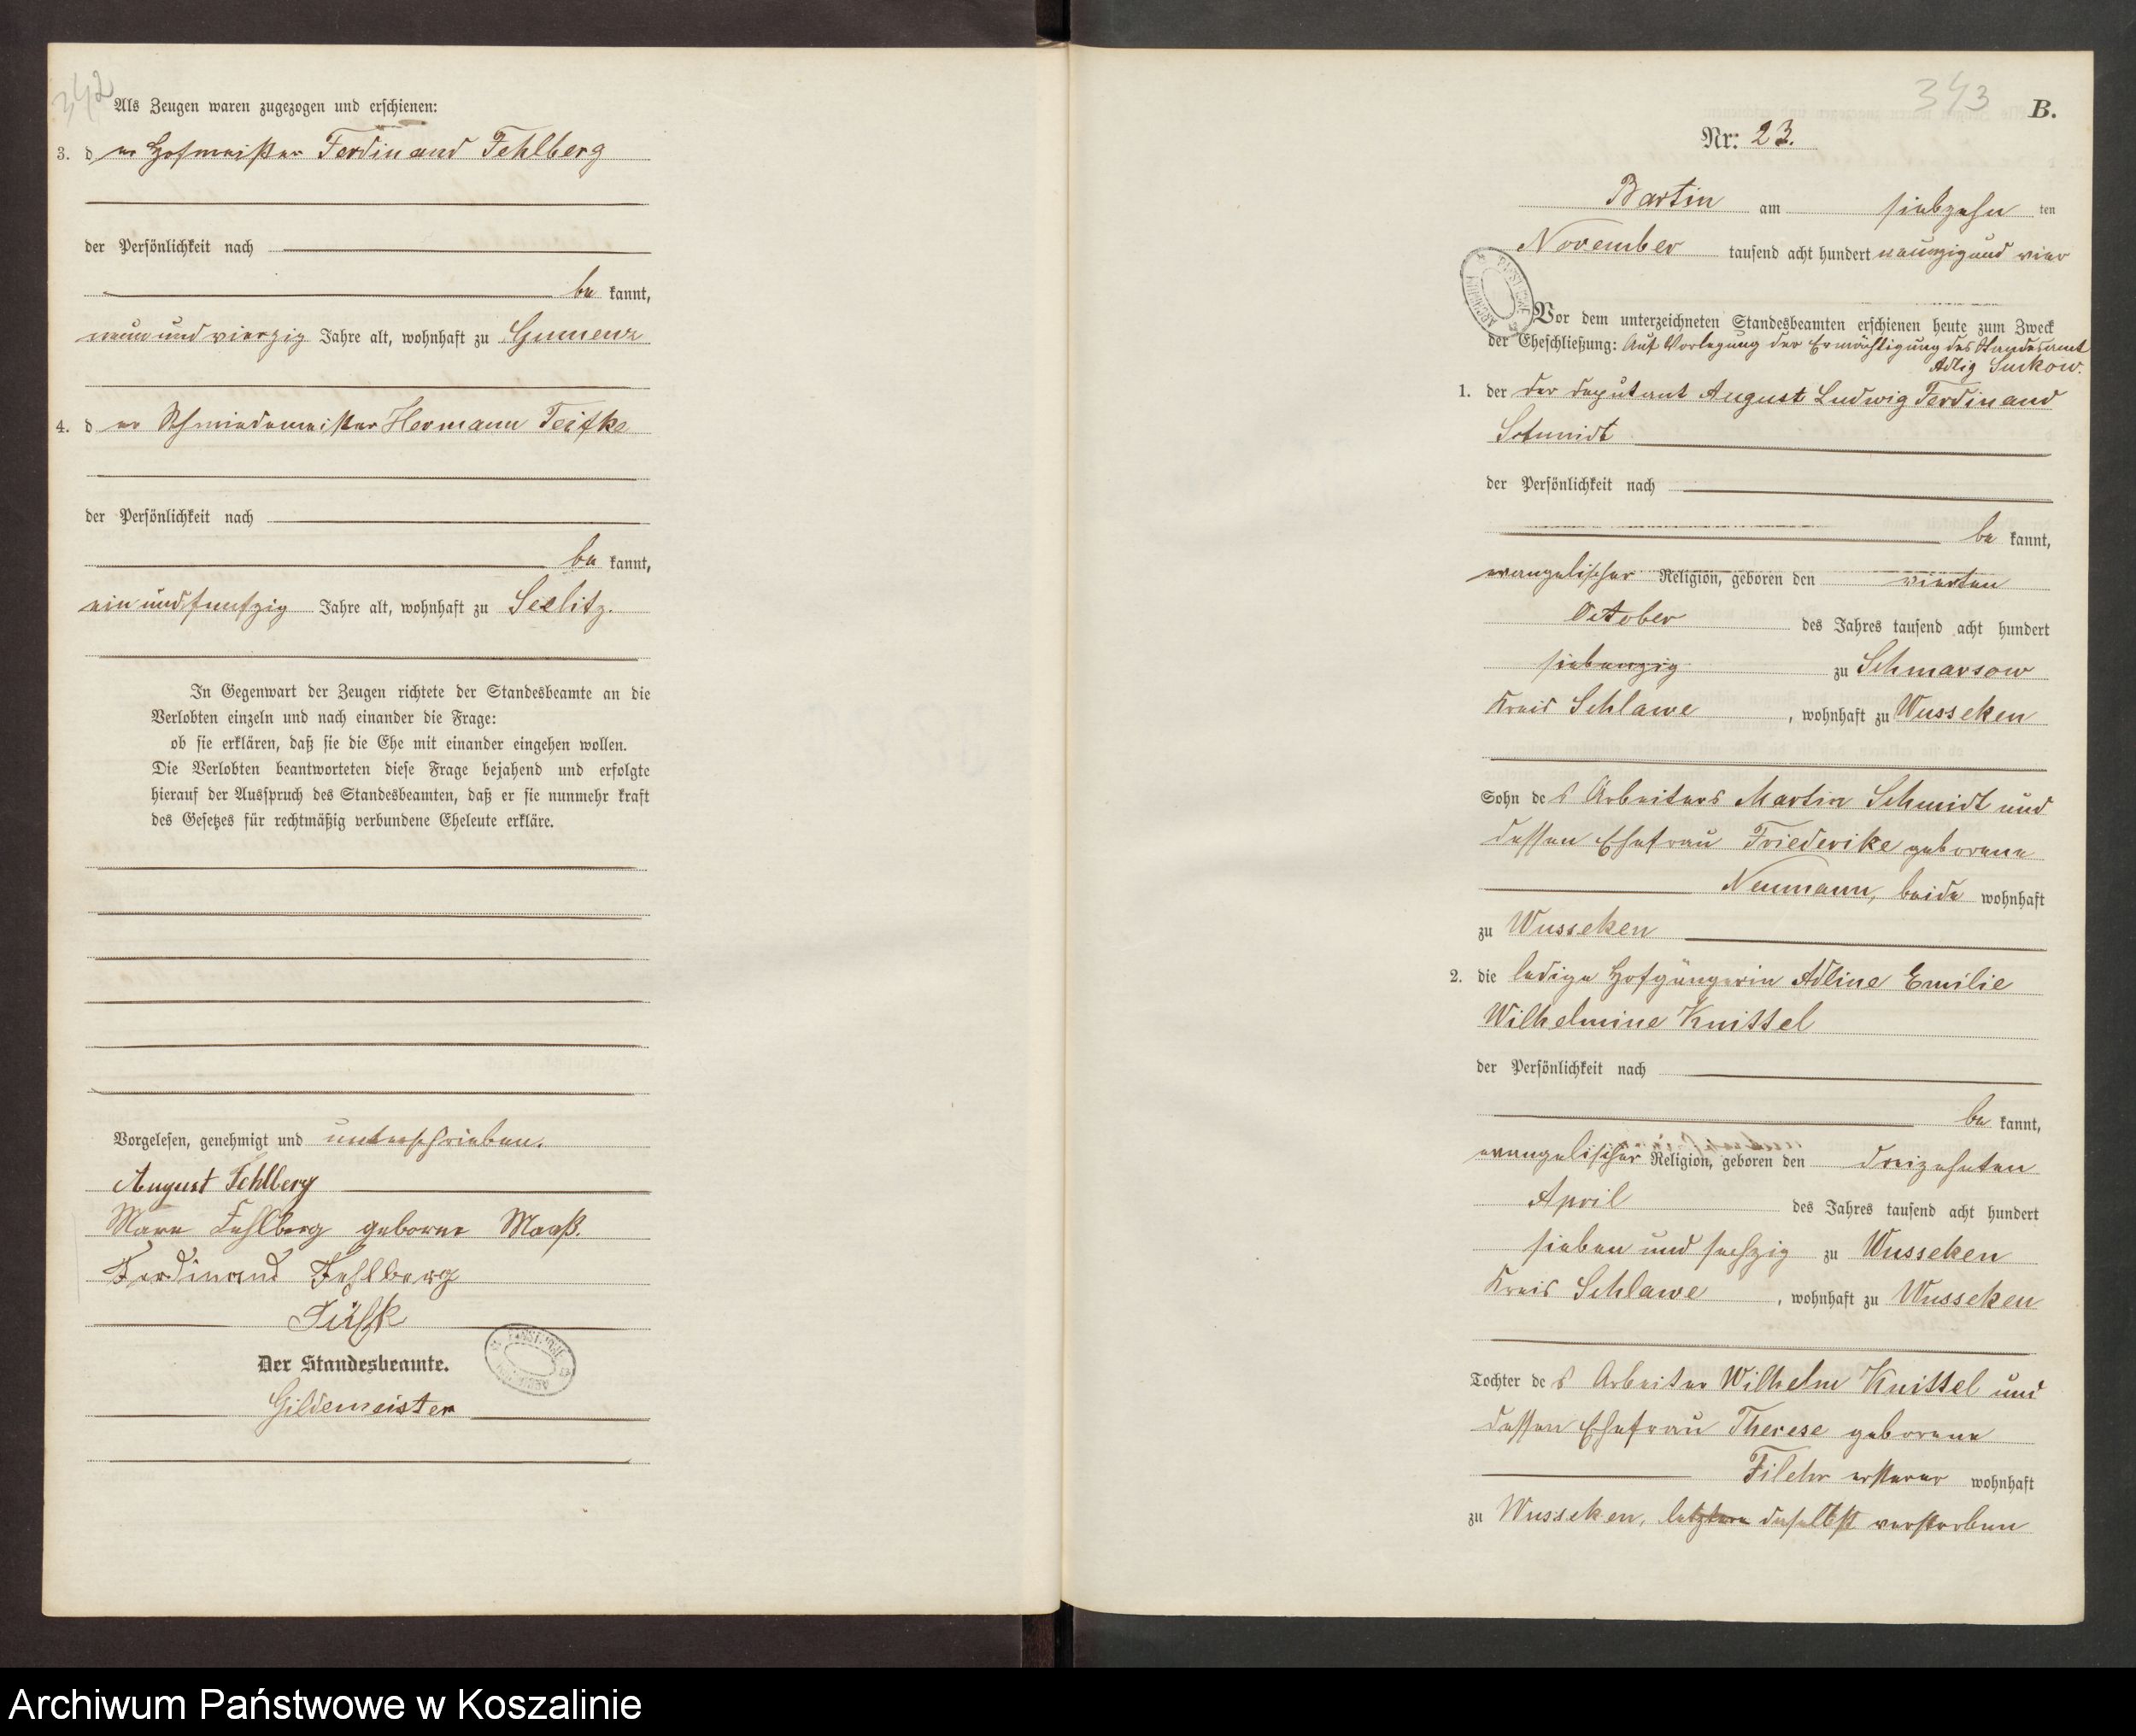 342
Als Zeugen waren zugezogen und erschienen:
3. der Hofmeister Ferdinand Fehlberg
der Persönlichkeit nach
bekannt,
neun und vierzig Jahre alt, wohnhaft zu Gumenz
4. der Schmiedemeister Hermann
der Persönlichkeit nach
bekannt,
ein und funfzig Jahre alt, wohnhaft zu Seelitz.
In Gegenwart der Zeugen richtete der Standesbeamte an die
Verlobten einzeln und nach einander die Frage:
ob sie erklären, daß sie die Ehe mit einander eingehen wollen.
Die Verlobten beantworteten diese Frage bejahend und erfolgte
hierauf der Ausspruch des Standesbeamten, daß er sie nunmehr kraft
des Gesetzes für rechtmäßig verbundene Eheleute erkläre.
Vorgelesen, genehmigt und unterschrieben.
August Fehlberg
Fehlberg geborne Maaß.
Ferdinand Fehlberg
Der Standesbeamte.
Gildemeister
343
B.
Nr: 23.
Bartin am siebzehnten
November tausend acht hundert neunzig und vier
Vor dem unterzeichneten Standesbeamten erschienen heute zum Zweck
der Eheschließung: Auf Vorlegung der Ermächtigung des Standesamt
Adlig Suckow.
1. der der Deputant August Ludwig Ferdinand
Schmidt
der Persönlichkeit nach
bekannt,
evangelischer Religion, geboren den vierten
October des Jahres tausend acht hundert
siebenzig zu Schmarsow
Kreis Schlawe, wohnhaft zu Wusseken
Sohn des Arbeiters Martin Schmidt und
dessen Ehefrau Friederike geborene
Neumann, beide wohnhaft
zu Wusseken
2. die ledige Hofgängerin Adline Emilie
Wilhelmine Knittel
der Persönlichkeit nach
bekannt,
evangelischer Religion, geboren den dreizehnten
April des Jahres tausend acht hundert
sieben und sechzig zu Wusseken
Kreis Schlawe, wohnhaft zu Wusseken
Tochter des Arbeiter Wilhelm Knittel und
dessen Ehefrau Therese geborene
Filehr ersterer wohnhaft
zu Wusseken, letztere daselbst verstorben
Archiwum Państwowe w Koszalinie